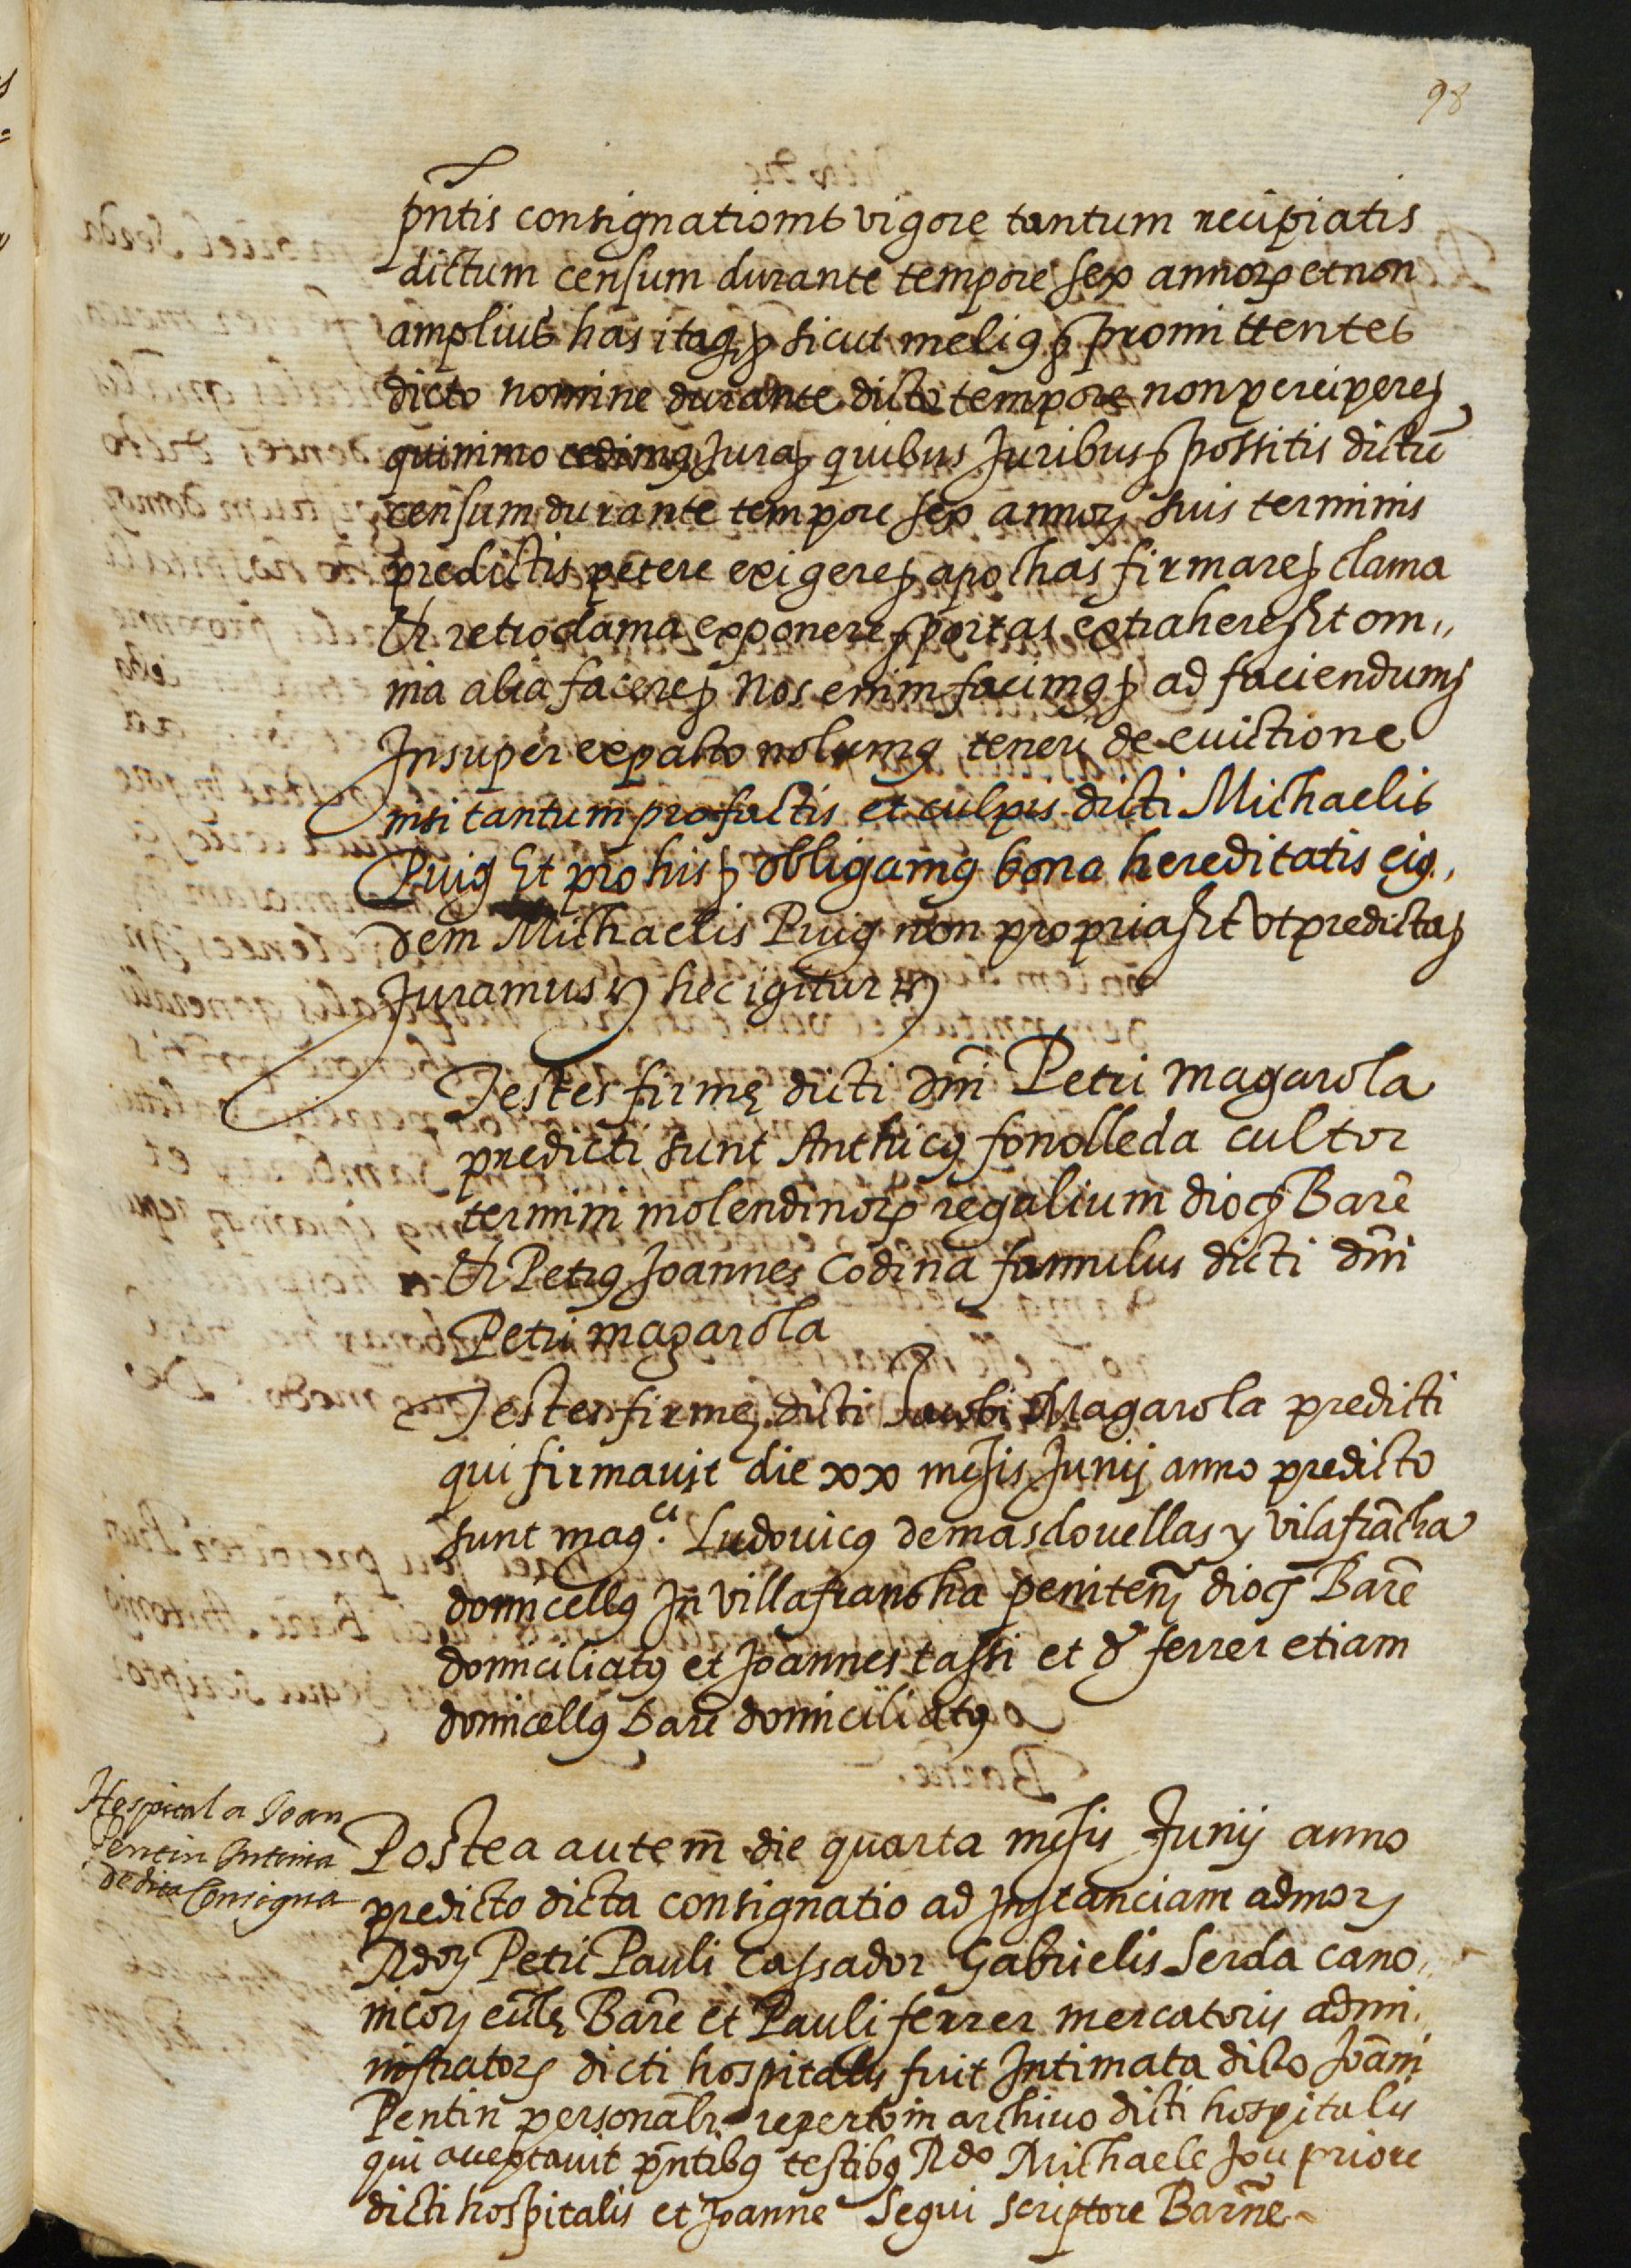 98
pñtis consignationis vigore tantum recipiatis
dictum censum durante tempore sex annorꝝ et non
amplius has itaqꝫ sicut meliꝰ ꝫ promittentes
dicto nomine durante dicto tempore non percipere ꝫ
quinimo cedimꝰ Jura ꝫ quibus Juribus ꝫ possitis dictũ
censum durante tempore sex annorꝝ suis terminis
predictis petere exigere ꝫ apochas firmare ꝫ clama
Et retroclama exponere ꝫ portas extrahere ꝫ Et om„
nia alia facere ꝫ Nos enim facimꝰ ꝫ ad faciendum ꝫ
Insuper ex pacto nolumꝰ teneri de euictione
nisi tantum pro factis et culpis dicti Michaelis
Puig Et pro his ꝫ obligamꝰ bona hereditatis eiꝰ„
dem Michaelis Puig non propria ꝫ Et vt predicta ꝫ
Juramus ꝫ hec igitur ꝫ
Testes firmę dicti dñi Petri Magarola
predicti sunt Anthicꝰ fonolleda cultor
termini molendinorꝝ regalium diocꝫ Barẽ
Et Petrꝰ Joannes Codina famulus dicti dñi
Petri magarola
Testes firmę dicti Jacobi Magarola predicti
qui firmauit die xx mẽsis Junij anno predicto
sunt magᶜⁱ. Ludouicꝰ de masdouellas y vilafrãcha
domicellꝰ In Villafrancha peniteñ diocꝫ Barẽ
domiciliatꝰ et Joannes tassi et de ferrer etiam
domicellꝰ Barẽ domiciliatꝰ
Hospital a Joan
Pentin Intima
de dita Consigna
Postea autem die quarta mẽsis Junij anno
predicto dicta consignatio ad Instanciam admorꝝ
Rdorꝝ Petri Pauli Cassador Gabrielis Serda cano„
nicorꝝ eccle Barẽ et Pauli ferrer mercatoris admi„
nistratorꝝ dicti hospitalis fuit Intimata dicto Joãni
Pentin personalr reperto in archiuo dicti hospitalis
qui acceptauit pñtibꝰ testibꝰ Rdo Michaele Jou priore
dicti hospitalis et Joanne Segui scriptore Barñe